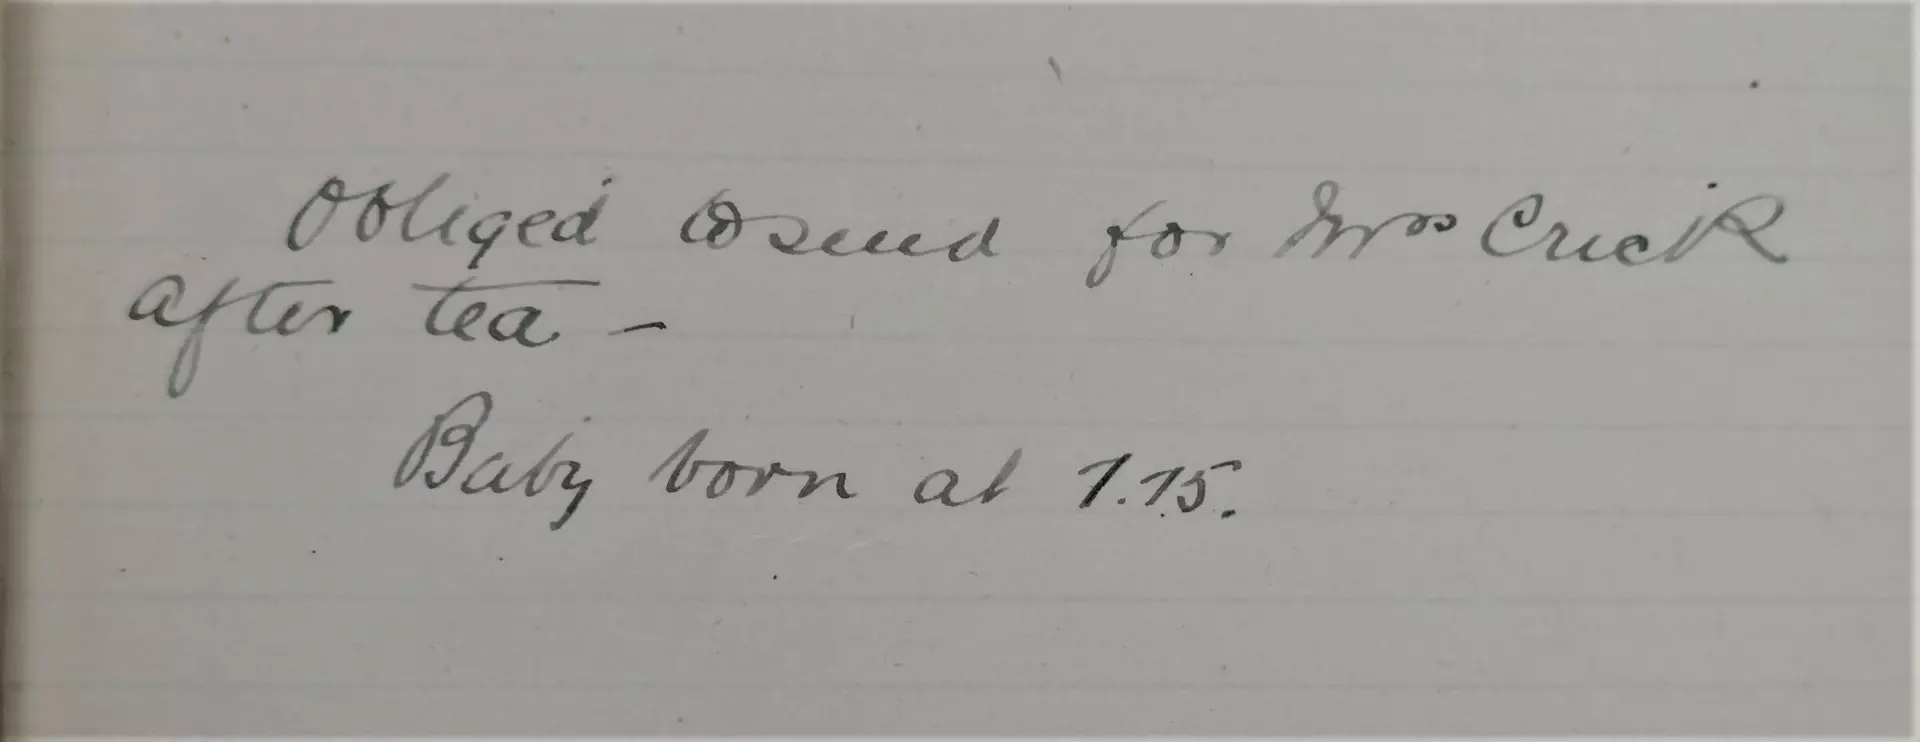 Obliged to send for Mrs Crick
after tea –
Baby born at 7.15.